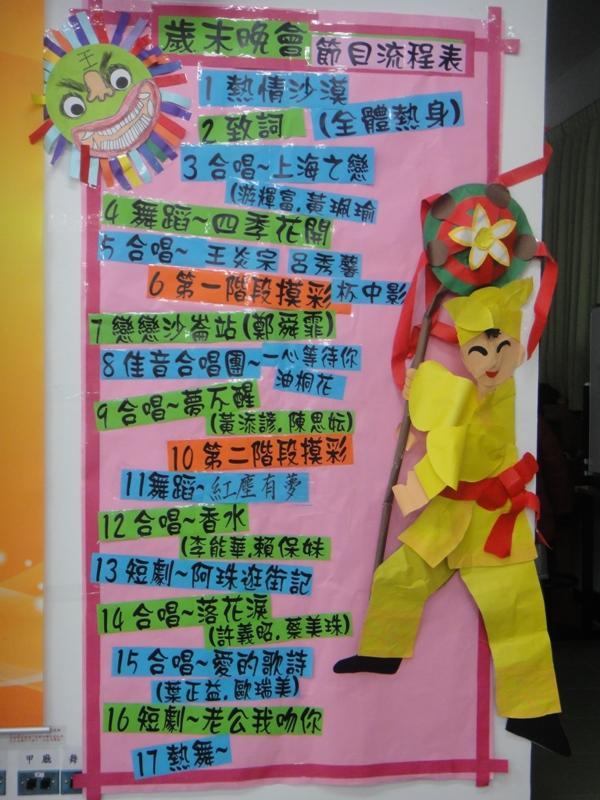 王
歲末晚會 節目流程表
1 熱情沙漠
2 致詞 (全體熱身)
3 合唱~上海之戀
(游輝富.黃珮瑜
4 舞蹈~四季花開
5 合唱~ 王炎宗 呂秀馨
6 第一階段摸彩 杯中影
7 戀戀沙崙站(鄭舜霏)
8 佳音合唱團~一心等待你
油桐花
9 合唱~夢不醒
(黃添諺.陳思妘)
10 第二階段摸彩
11 舞蹈~紅塵有夢
12 合唱~香水
(李能華.賴保妹
13 短劇~阿珠逛街記
14 合唱~落花淚
(許義昭.蔡美珠)
15 合唱~愛的歌詩
(葉正益.歐瑞美)
16 短劇~老公我吻你
17 熱舞~
甲 廳 舞